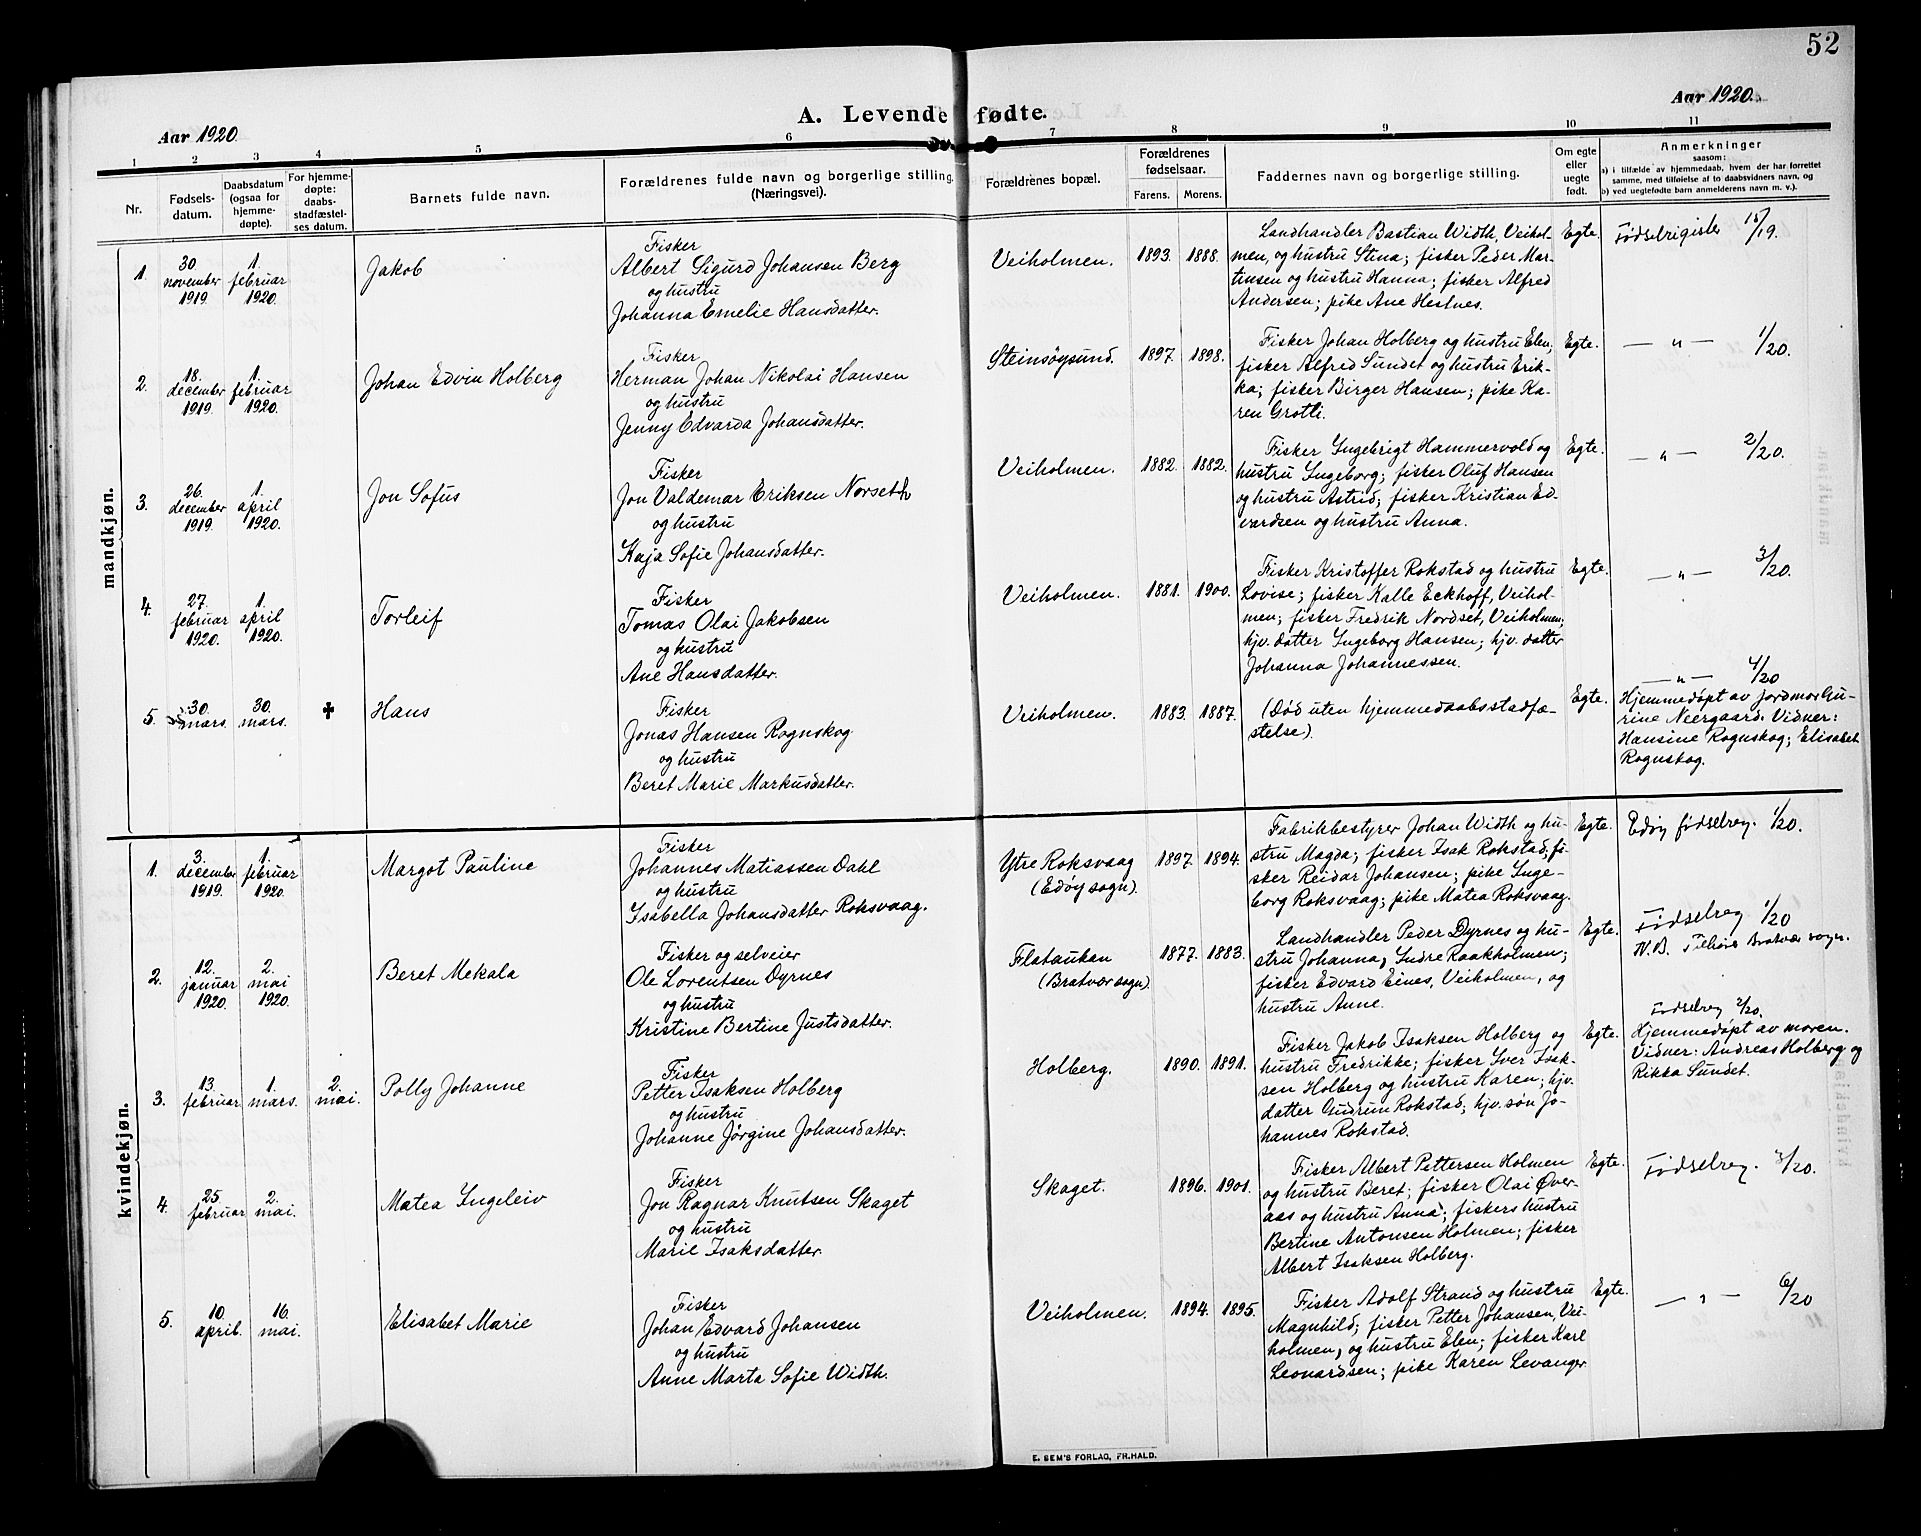 52
Aar 1920.
A. Levende fødte.
Aar 1920.
1
2
3
4
5
6
7
8
9
10
11
Nr.
Fødsels-
datum.
Daabsdatum
(ogsaa for
hjemme-
døpte).
For hjemme-
døpte:
daabs-
stadfæstel-
ses datum.
Barnets fulde navn.
Forældrenes fulde navn og borgerlige stilling.
(Næringsvei).
Forældrenes bopæl.
Forældrenes
fødselsaar.
Farens.
Morens.
Faddernes navn og borgerlige stilling.
Om egte
eller
uegte
født.
Anmerkninger
saasom:
a) i tilfælde av hjemmedaab, hvem der har forrettet
samme, med tilføielse af to daabsvidners navn, og
b) ved uegtefødte barn anmelderens navn m. v.).
mandkjøn.
1.
30
november
1919.
1.
februar
1920.
Jakob
Fisker
Albert Sigurd Johansen Berg
og hustru
Johanna Emelie Hansdatter.
Veiholmen.
1893.
1888.
Landhandler Bastian Width, Veihol-
men, og hustru Stina; fisker Peder Mar-
tinsen og hustru Hanna; fisker Alfred
Andersen; pike Ane Hestnes.
Egte.
Fødselrigister
/19.
2.
18.
december
1919.
1.
februar
1920.
Johan Edvin Holberg
Fisker
Herman Johan Nikolai Hansen
og hustru
Jenny Edvarda Johansdatter.
Steinsøysund.
1897.
1898.
Fisker Johan Holberg og hustru Elen;
fisker Alfred Sundet og hustru Erik-
ka; fisker Birger Hansen; pike Ka-
ren Grotli.
Egte.
— " — 1/20.
3.
26.
december
1919.
1.
april
1920.
Jon Sofus
Fisker
Jon Valdemar Eriksen Norseth
og hustru
Kaja Sofie Johansdatter.
Veiholmen.
1882.
1882.
Fisker Ingebrigt Hammervold og
hustru Ingeborg; fisker Oluf Hansen
og hustru Astrid; fisker Kristian Ed-
vardsen og hustru Anna.
Egte.
— " — 2/20.
4.
27.
februar
1920.
1.
april
1920.
Torleif
Fisker
Tomas Olai Jakobsen
og hustru
Ane Hansdatter.
Veiholmen.
1881.
1900.
Fisker Kristoffer Rokstad og hustru
Lovise; fisker Kalle Eckhoff, Veihol-
men; fisker Fredrik Nordset, Veiholmen;
hjv. datter Ingeborg Hansen; hjv. datter
Johanna Johannessen.
Egte.
— " — 3/20.
5.
30.
mars.
30.
mars.
✝
Hans
Fisker
Jonas Hansen Rognskog
og hustru
Beret Marie Markusdatter.
Veiholmen.
1883.
1887.
(Død uten hjemmedaabsstadfæ-
stelse).
Egte.
— " — 4/20
Hjemmedøpt av jordmor Gu-
rine Neergaard. Vidner:
Hansine Rognskog; Elisabet
Rognskog.
kvindekjøn.
1.
3.
december
1919.
1.
februar
1920.
Margot Pauline
Fisker
Johannes Matiassen Dahl
og hustru
Isabella Johansdatter Roksvaag.
Ytre Roksvaag
(Edøy sogn).
1897.
1894.
Fabrikbestyrer Johan Width og hu-
stru Magda; fisker Isak Rokstad; fi-
sker Reidar Johansen; pike Inge-
borg Roksvaag; pike Matea Roksvaag.
Egte.
Edøy fødselreg. 1/20.
2.
12.
januar
1920.
2.
mai
1920.
Beret Mekala
Fisker og selveier
Ole Lorentsen Dyrnes
og hustru
Kristine Bertine Justsdatter.
Flataukan
(Bratvær sogn).
1877.
1883.
Landhandler Peder Dyrnes og hu-
stru Johanna, Indre Raakholmen;
fisker Edvard Eines, Veiholmen, og
hustru Anne.
Egte.
Fødselreg 1/20
N.B. Tilhører Bratvær sogn.
3.
13.
februar
1.
mars.
2.
mai.
Polly Johanne
Fisker
Petter Isaksen Holberg
og hustru
Johanne Jørgine Johansdatter.
Holberg.
1890.
1891.
Fisker Jakob Isaksen Holberg og
hustru Fredrikke; fisker Iver Isak-
sen Holberg og hustru Karen; hjv.
datter Gudrun Rokstad; hjv. søn Jo-
hannes Rokstad.
Egte.
Fødselreg 2/20.
Hjemmedøpt av moren.
Vidner: Andreas Holberg og
Rikka Sundet.
4.
25.
februar
2.
mai.
Matea Ingeleiv
Fisker
Jon Ragnar Knutsen Skaget
og hustru
Marie Isaksdatter.
Skaget.
1896.
1901.
Fisker Albert Pettersen Holmen
og hustru Beret; fisker Olai Øver-
aas og hustru Anna; fiskers hustru
Bertine Antonsen Holmen; fisker
Albert Isaksen Holberg.
Egte.
Fødselreg. 3/20.
5.
10.
april.
16.
mai.
Elisabet Marie
Fisker
Johan Edvard Johansen
og hustru
Anne Marta Sofie Width.
Veiholmen.
1894.
1895.
Fisker Adolf Strand og hustru
Magnhild; fisker Petter Johansen, Vei-
holmen, og hustru Elen; fisker Karl
Leonardsen; pike Karen Levanger
Egte.
— " — 6/20
E. SEM'S FORLAG, FR.HALD.